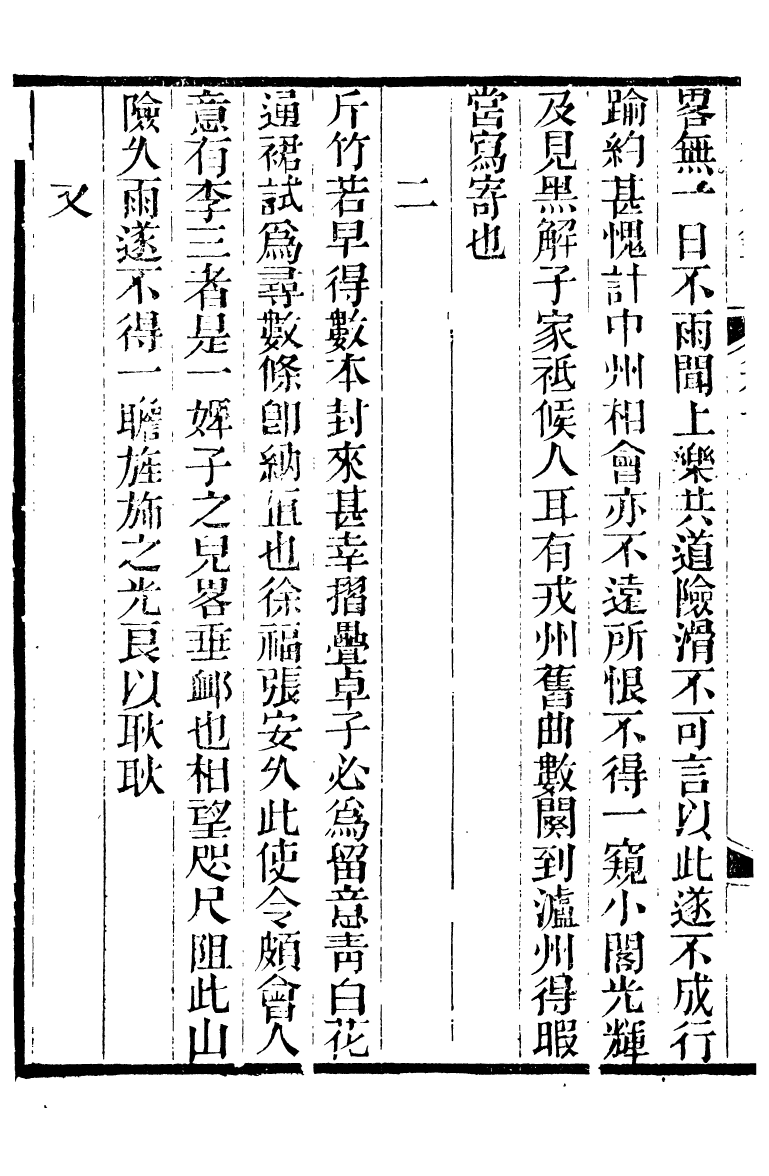 畧無一日不雨聞上樂共道險滑不可言以此遂不成行
踰約甚愧計中州相會亦不遠所恨不得一窺小閣光輝
及見黑解子家祗候人耳有戎州舊曲數闋到瀘州得暇
當寫寄也
二
斤竹若早得數本封來甚幸摺疊卓子必為留意靑白花
通裙試為尋數條卽納值也徐福張安久此使令頗會人
意有李三者是一婢子之兒畧垂䘏也相望咫尺阻此山
險久雨遂不得一瞻旌斾之光良以耿耿
又